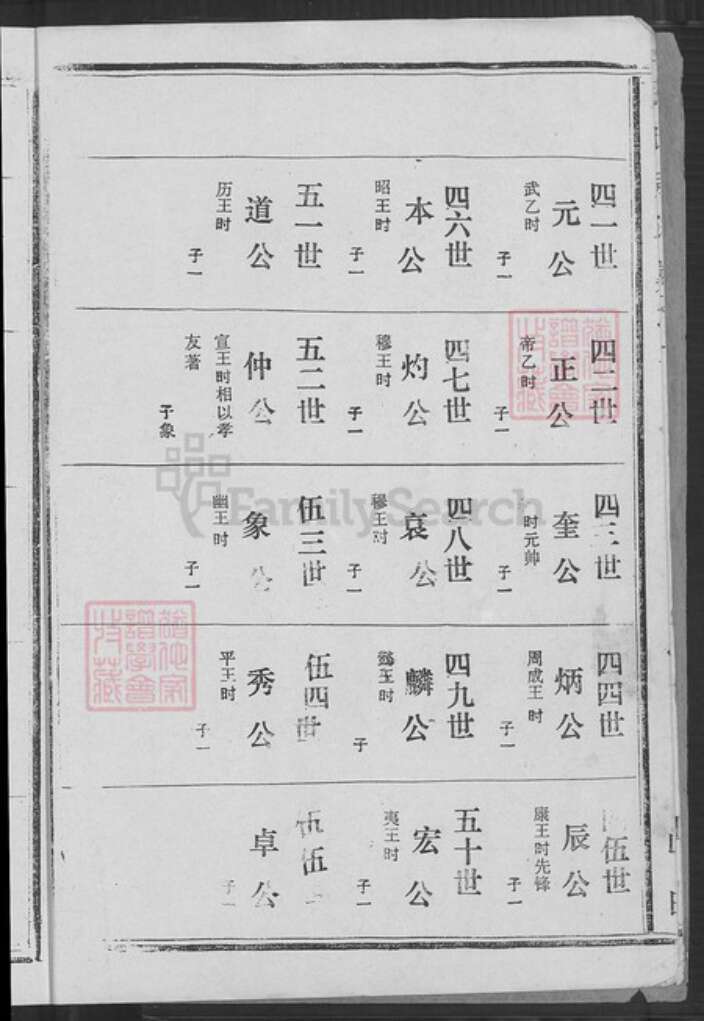 四一世
元公
武乙时
子一
四二世
正公
帝乙时
子一
四三世
奎公
时元帅
子一
四四世
炳公
周成王时
子一
伍世
辰公
康王时先锋
子一
四六世
本公
昭王时
子一
四七世
灼公
穆王时
子一
四八世
哀公
穆王时
子一
四九世
麟公
王时
子
五十世
宏公
夷王时
子一
五一世
道公
历王时
子一
五二世
仲公
宣王时相以孝
友著
子象
伍三世
象公
幽王时
子一
伍四世
秀公
平王时
子一
伍伍
卓公
子一
FamilySearch